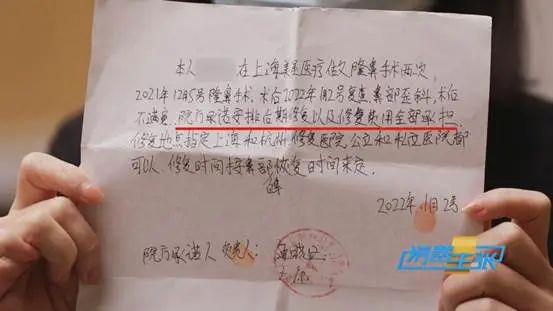 本人 在上海美莱医疗做过隆鼻手术两次,
2021年12月5号隆鼻手术,术后2022年1月2号复查鼻部歪斜,术后
不满意,院方承诺安排后期修复以及修复费用全部承担.
修复地点指定上海和杭州修复医院,公立和私立医院都
可以,修复时间按鼻部恢复时间来定.
2022年1月2号
院方承诺人 负责人:
消费主张